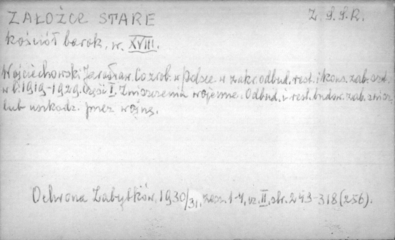 ZAŁOŹCE STARE Z.S.S.R.
kościół barok. w. XVIII.
Wojciechowski Jarosław. Co zrob. w Polsce w zakr. odbud. rest. i kons. zab. arch.
w l. 1919-1929. Część I. Zniszczenia wojenne. Odbud. i rest. budow. zab. zniszcz.
lub uszkodz. przez wojnę.
Ochrona Zabytków, 1930/31, zesz. 1-4, cz. II, str. 243-318 (256).